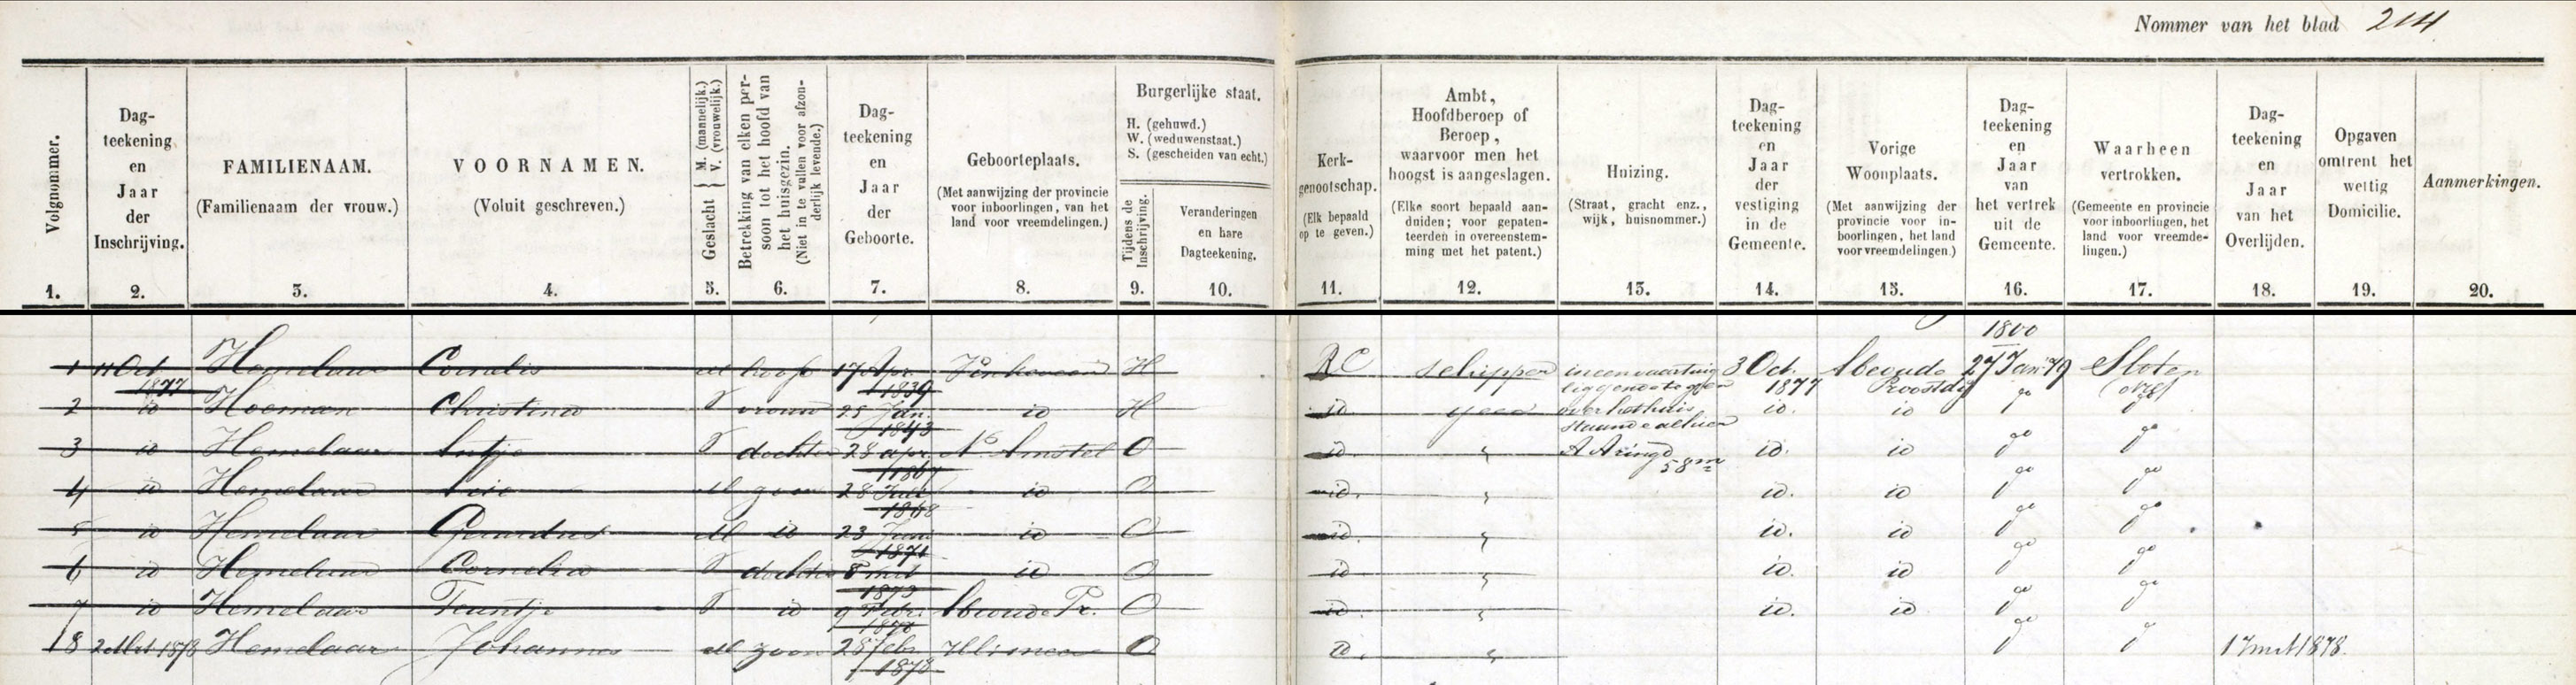 Nommer van het blad 214
Volgnommer.
Dag-
teekening
en
Jaar
der
Inschrijving.
FAMILIENAAM.
(Familienaam der vrouw.)
VOORNAMEN.
(Voluit geschreven.)
Geslacht { M. (mannelijk.)
V. (vrouwelijk.)
Betrekking van elken per-
soon tot het hoofd van
het huisgezin.
(Niet in te vullen voor afzon-
derlijk levende.)
Dag-
teekening
en
Jaar
der
Geboorte.
Geboorteplaats.
(Met aanwijzing der provincie
voor inboorlingen, van het
land voor vreemdelingen.)
Burgerlijke staat.
H. (gehuwd.)
W. (weduwenstaat.)
S. (gescheiden van echt.)
Tijdens de
Inschrijving.
Veranderingen
en hare
Dagteekening.
Kerk-
genootschap.
(Elk bepaald
op te geven.)
Ambt,
Hoofdberoep of
Beroep,
waarvoor men het
hoogst is aangeslagen.
(Elke soort bepaald aan-
duiden; voor gepaten-
teerden in overeenstem-
ming met het patent.)
Huizing.
(Straat, gracht enz.,
wijk, huisnommer.)
Dag-
teekening
en
Jaar
der
vestiging
in de
Gemeente.
Vorige
Woonplaats.
(Met aanwijzing der
provincie voor in-
boorlingen, het land
voor vreemdelingen.)
Dag-
teekening
en
Jaar
van
het vertrek
uit de
Gemeente.
Waarheen
vertrokken.
(Gemeente en provincie
voor inboorlingen, het
land voor vreemde-
lingen.)
Dag-
teekening
en
Jaar
van het
Overlijden.
Opgaven
omtrent het
wettig
Domicilie.
Aanmerkingen.
1. 2. 3. 4. 5. 6. 7. 8. 9. 10. 11. 12. 13. 14. 15. 16. 17. 18. 19. 20.
1 11 Oct 1877 Hemelaar Cornelis M hoofd 17 Apr. 1839 Vinkeveen H RC schipper in een vaartuig 3 Oct. 1877 Abcoude Proostdij 27 Jan 79 Sloten
liggende tegen
2 id Hoeman Christina V vrouw 25 Jan. 1843 id H id geen over het huis id. id go go
staande alhier
3 id Hemelaar Antje V dochter 28 apr. 1867 N. Amstel O id " A 58m id. id go go
4 id Hemelaar Arie M zoon 28 Juli 1868 id O id. " id. id go go
5 id Hemelaar Gerardus M id 23 Juni 1871 id O id. " id. id go go
6 id Hemelaar Cornelia V dochter 8 mrt 1873 id O id " id. id go go
7 id Hemelaar Teuntje V id 9 Febr. Abcoude Pr. O id. " id. id go go
8 2 Mrt 1878 Hemelaar Johannes M zoon 28 febr 1878 O id. " 17 mrt 1878.